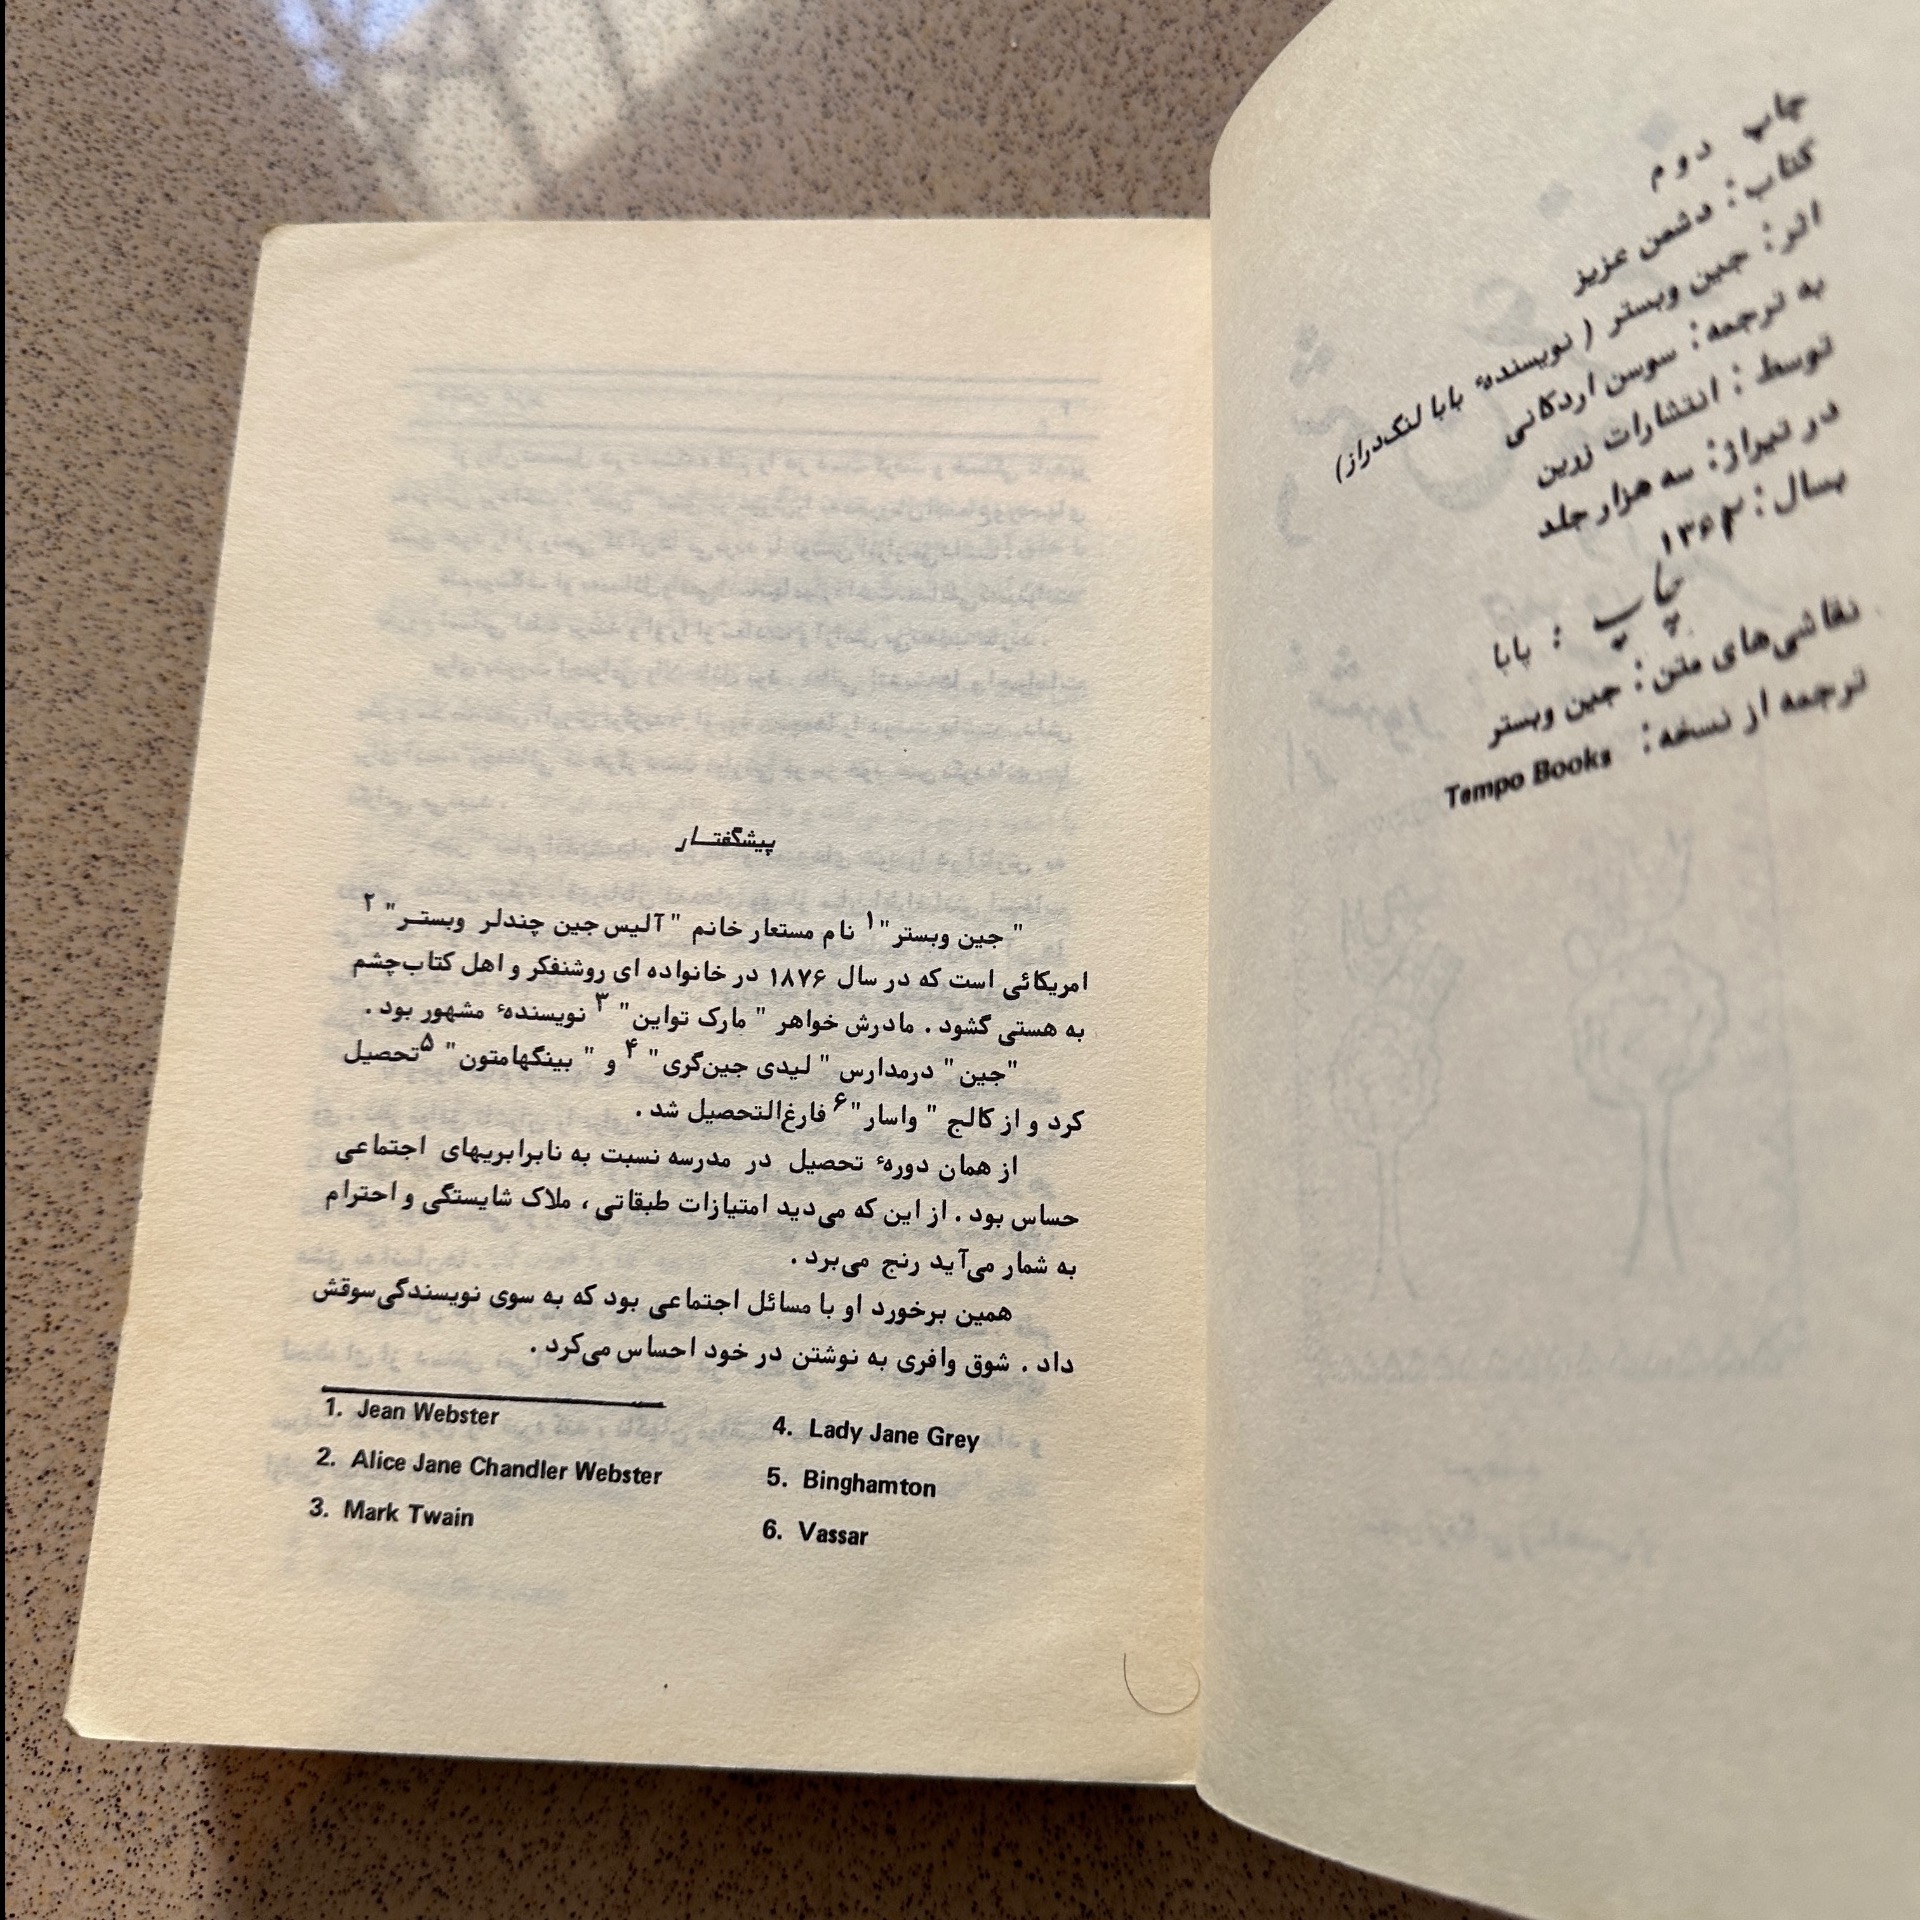 چاپ دوم
کتاب: دشمن عزیز
اثر: جین وبستر (نویسندهٔ بابا لنگ‌دراز)
به ترجمه: سوسن اردکانی
توسط: انتشارات زرین
در تیراژ: سه هزار جلد
بسال: ۱۳۶۳
چاپ: بابا
نقاشی‌های متن: جین وبستر
ترجمه از نسخه: Tempo Books
پیشگفتــار
" جین وبستر"۱ نام مستعار خانم " آلیس جین چندلر وبستــر" ۲
امریکائی است که در سال ۱۸۷۶ در خانواده ای روشنفکر و اهل کتاب‌چشم
به هستی گشود . مادرش خواهر " مارک تواین" ۳ نویسندهٔ مشهور بود .
"جین" درمدارس" لیدی جین‌گری" ۴ و " بینگهامتون" ۵تحصیل
کرد و از کالج " واسار"۶ فارغ‌التحصیل شد .
از همان دورهٔ تحصیل در مدرسه نسبت به نابرابریهای اجتماعی
حساس بود . از این که می‌دید امتیازات طبقاتی ، ملاک شایستگی و احترام
به شمار می‌آید رنج می‌برد .
همین برخورد او با مسائل اجتماعی بود که به سوی نویسندگی‌سوقش
داد . شوق وافری به نوشتن در خود احساس می‌کرد .
1. Jean Webster
2. Alice Jane Chandler Webster
3. Mark Twain
4. Lady Jane Grey
5. Binghamton
6. Vassar